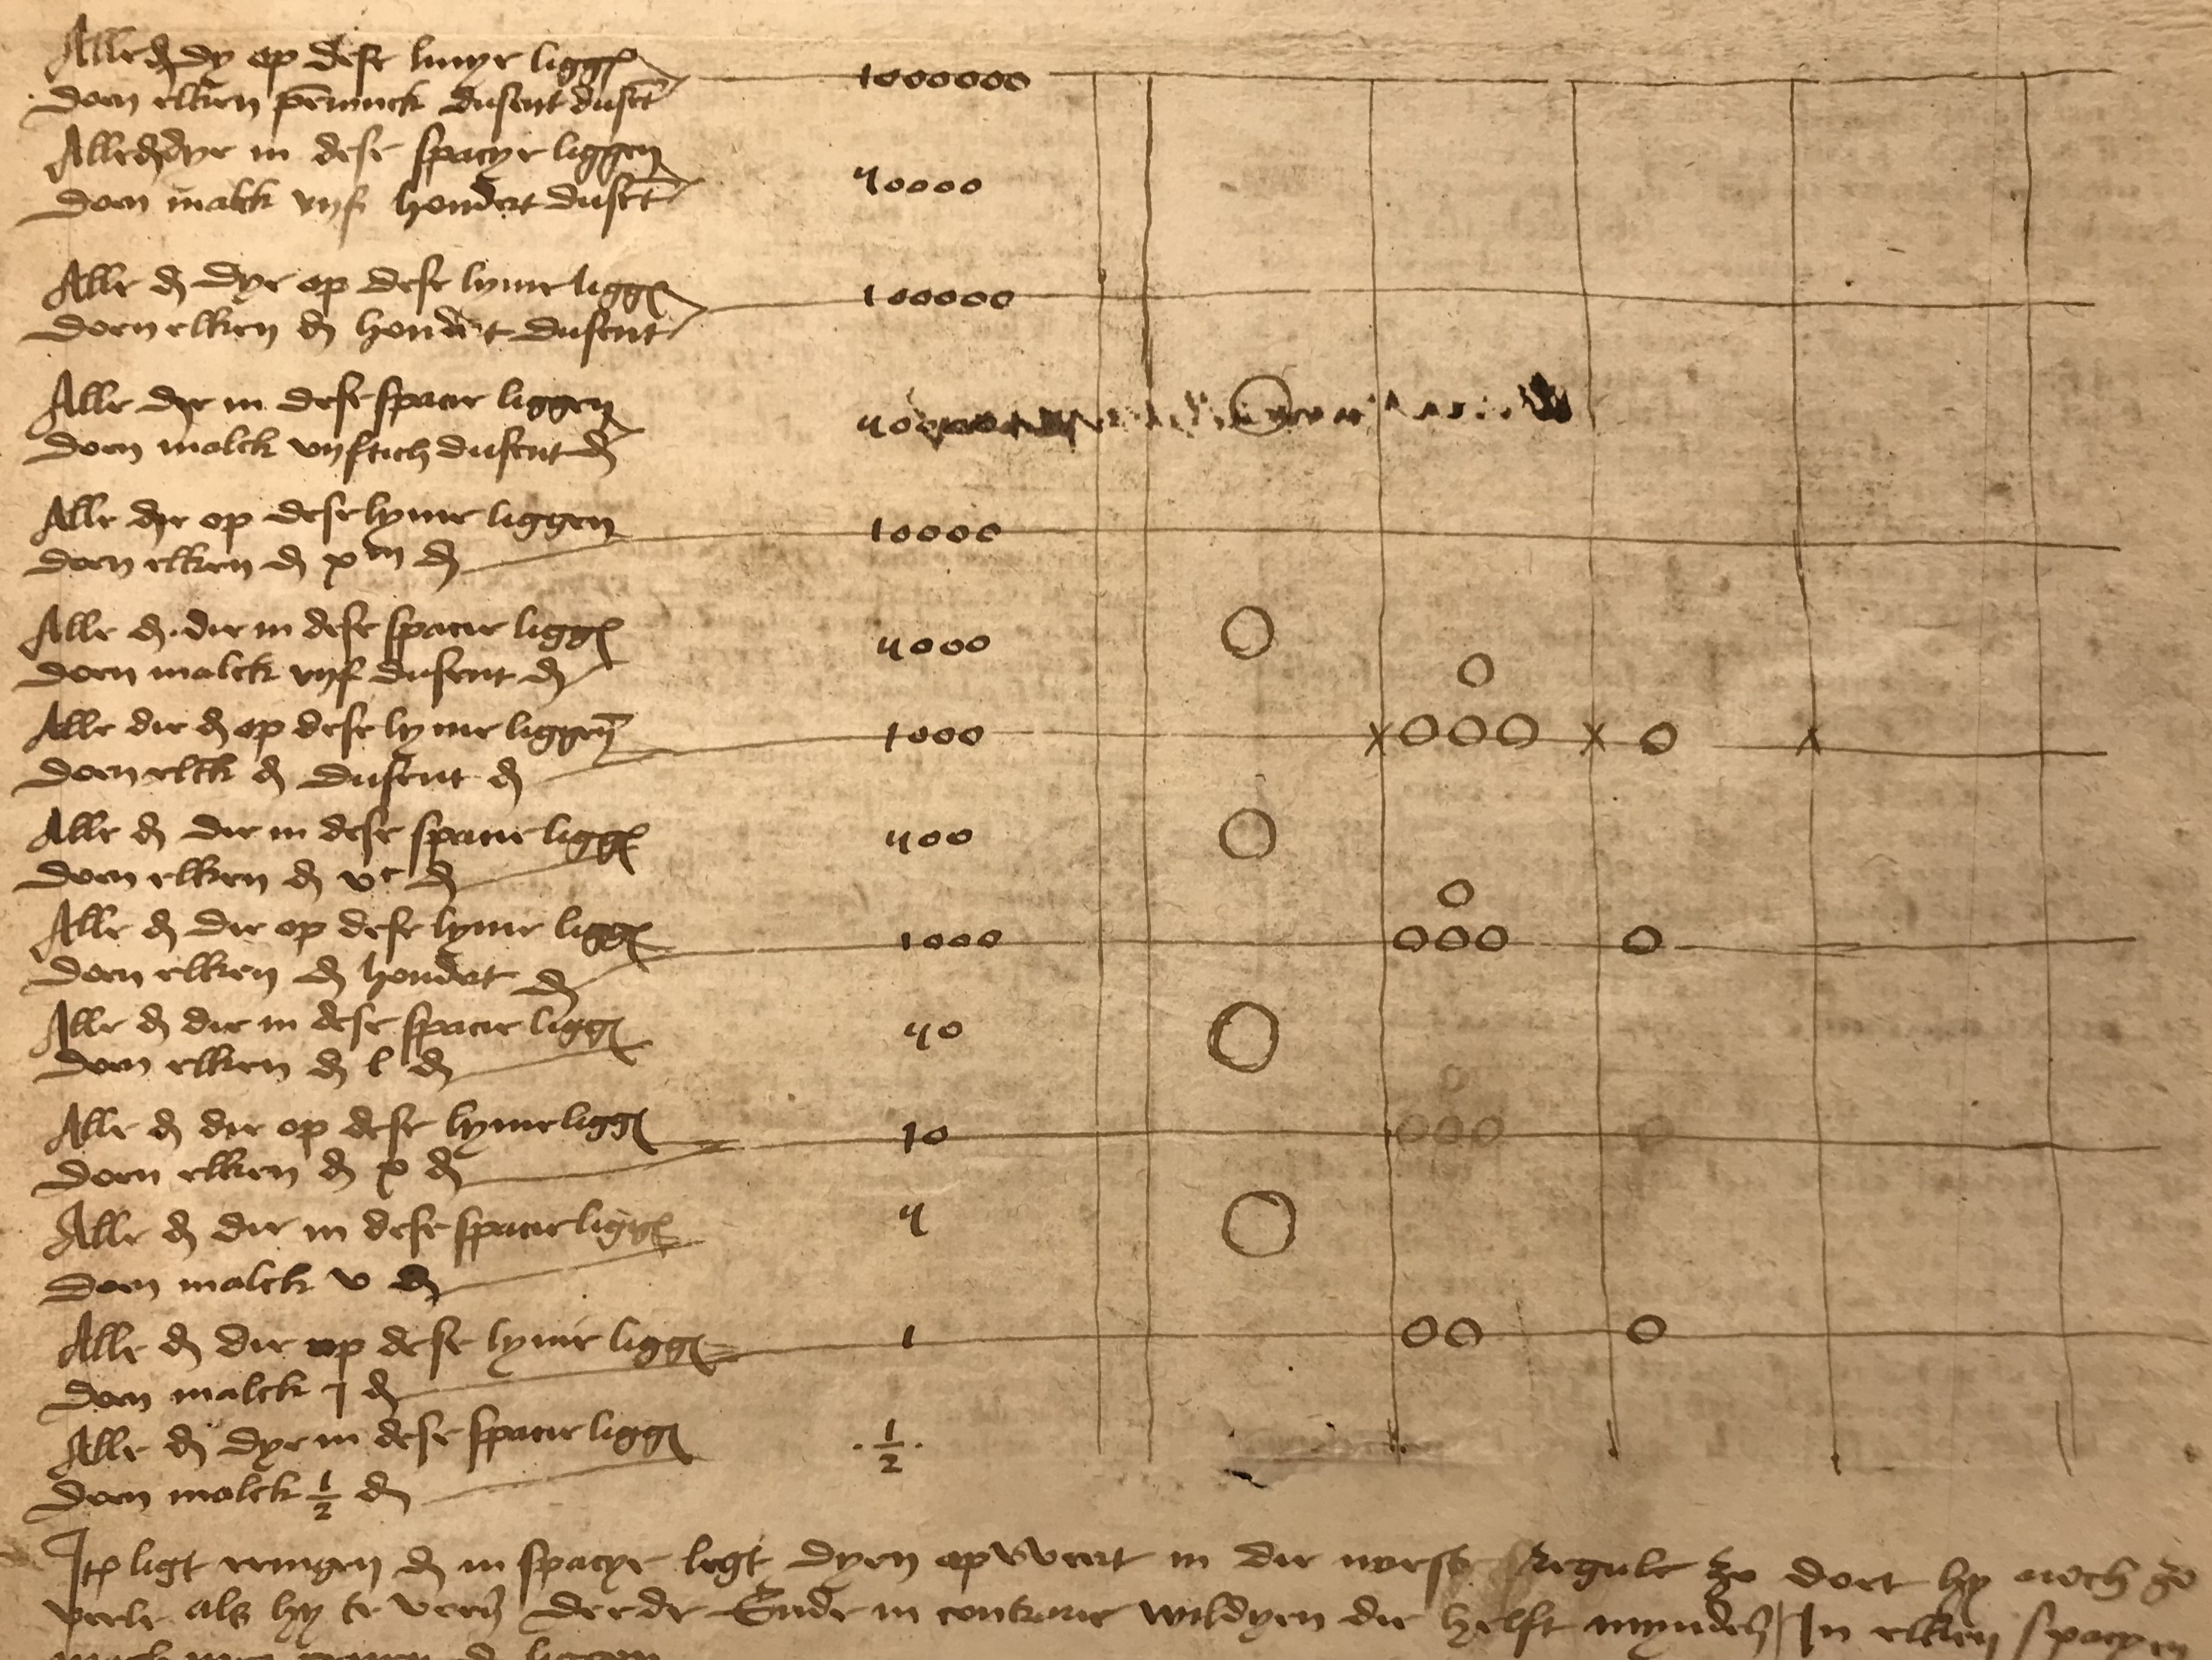 Alle d dy op dese linye ligg
doen elken penninck dusent duset
1000000
Alle d dye in dese spacye liggen
doen malck vyf hondert duset
50000
Alle d dye op dese lynie ligg
doen elken d hondert dusent
100000
Alle dye in dese spacie liggen
doen malck vyftich dusent d
Alle die op dese lynie liggen
doen elken d x m d
10000
Alle d die in dese spacie ligg
doen malck vyf dusent d
5000
Alle die d op dese lynie liggen
doen elck d dusent d
1000
Alle d die in dese spacie ligg
doen elken d vc d
500
Alle d die op dese lynie ligg
doen elken d hondert d
1000
Alle d die in dese spacie ligg
doen elken d l d
50
Alle d die op dese lynie ligg
doen elken d x d
10
Alle d die in dese spacie ligg
doen malck v d
5
Alle d die op dese lynie ligg
doen malck j d
1
Alle d dye in dese spacie ligg
doen malck 1/2 d
. 1/2 .
Ite ligt eenigen d in spacye legt dyen opwert in die regule zo doet hy noch zo
veele als hy te voern derde Ende in contrarie wildyen die helft mynder In elken spacyen